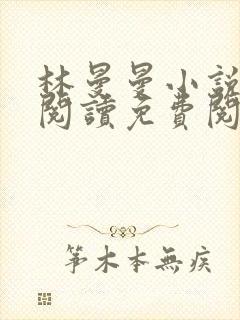 林曼曼小說
閱讀免費閱
笫木本無疾